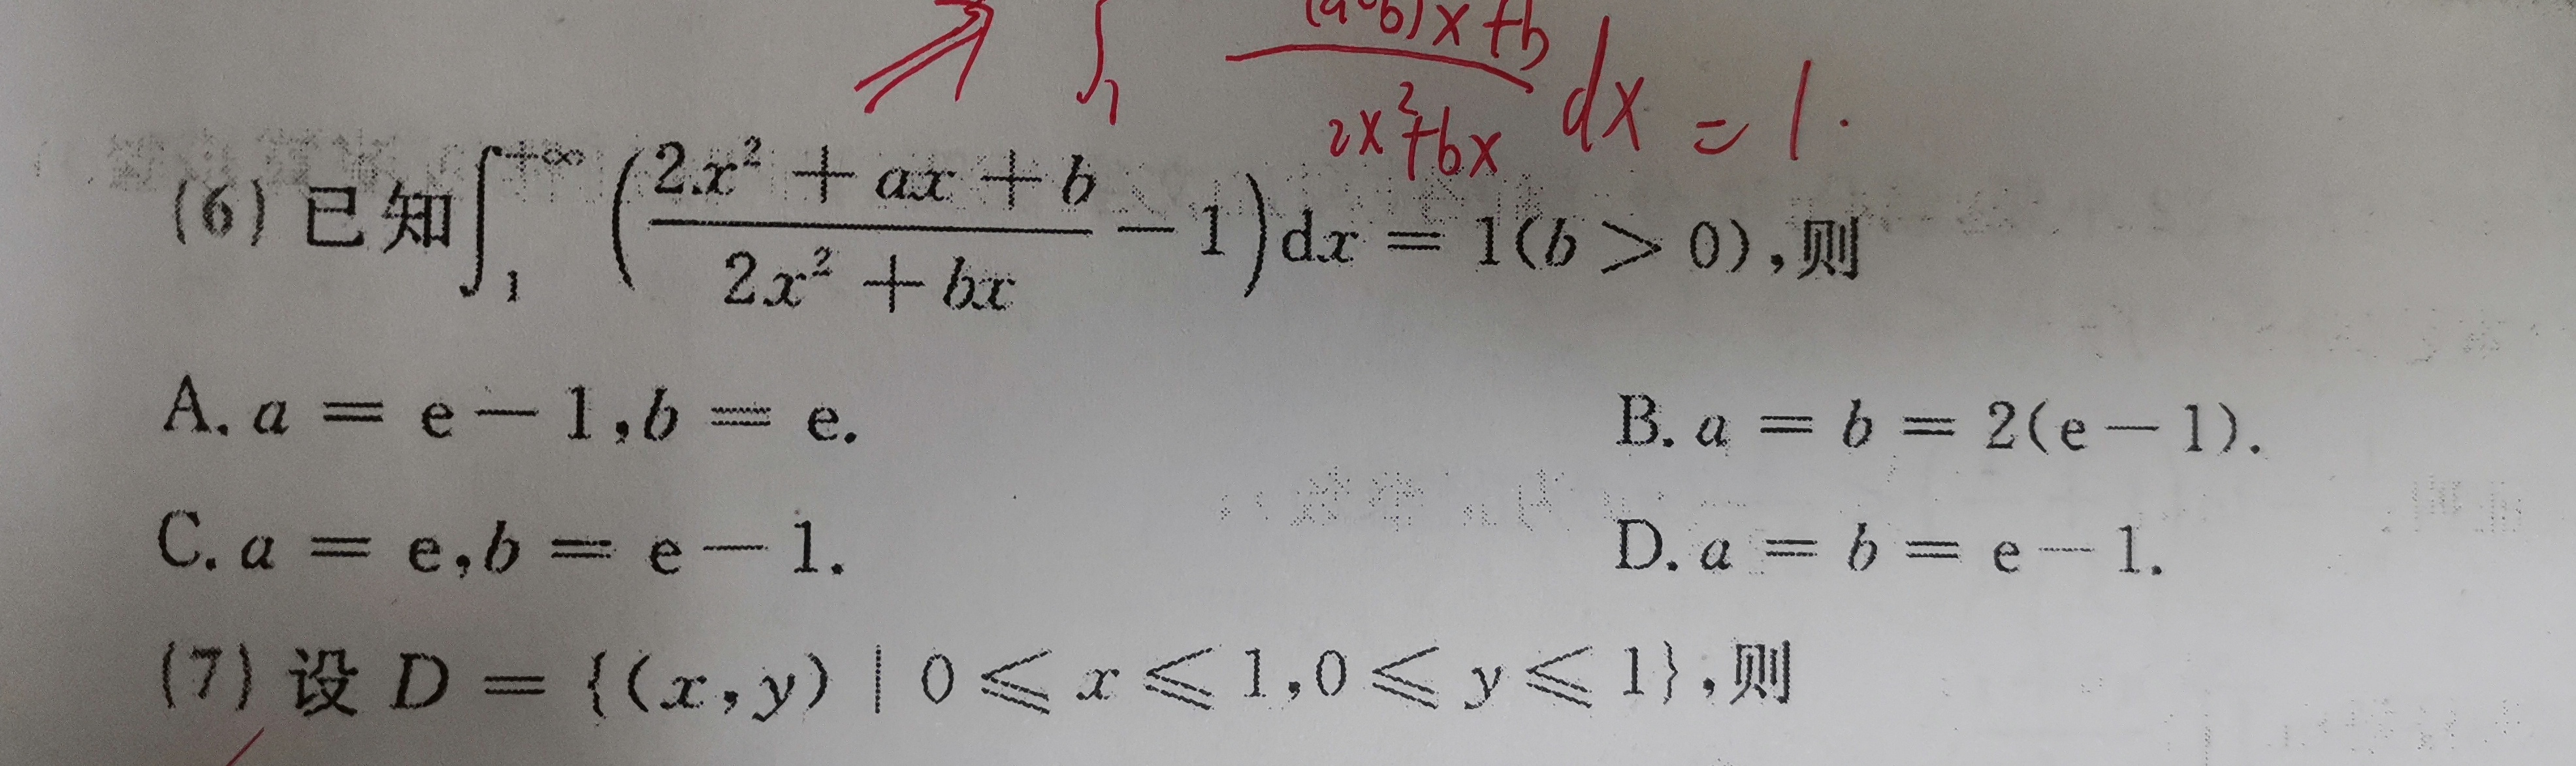 ⇒ ∫₁ (a-b)x+b / 2x²+bx dx = 1.
(6) 已知∫₁^{+∞} ( (2x² + ax + b)/(2x² + bx) − 1 ) dx = 1(b > 0),则
A. a = e − 1,b = e. B. a = b = 2(e − 1).
C. a = e,b = e − 1. D. a = b = e − 1.
(7) 设 D = {(x,y) | 0 ⩽ x ⩽ 1,0 ⩽ y ⩽ 1},则